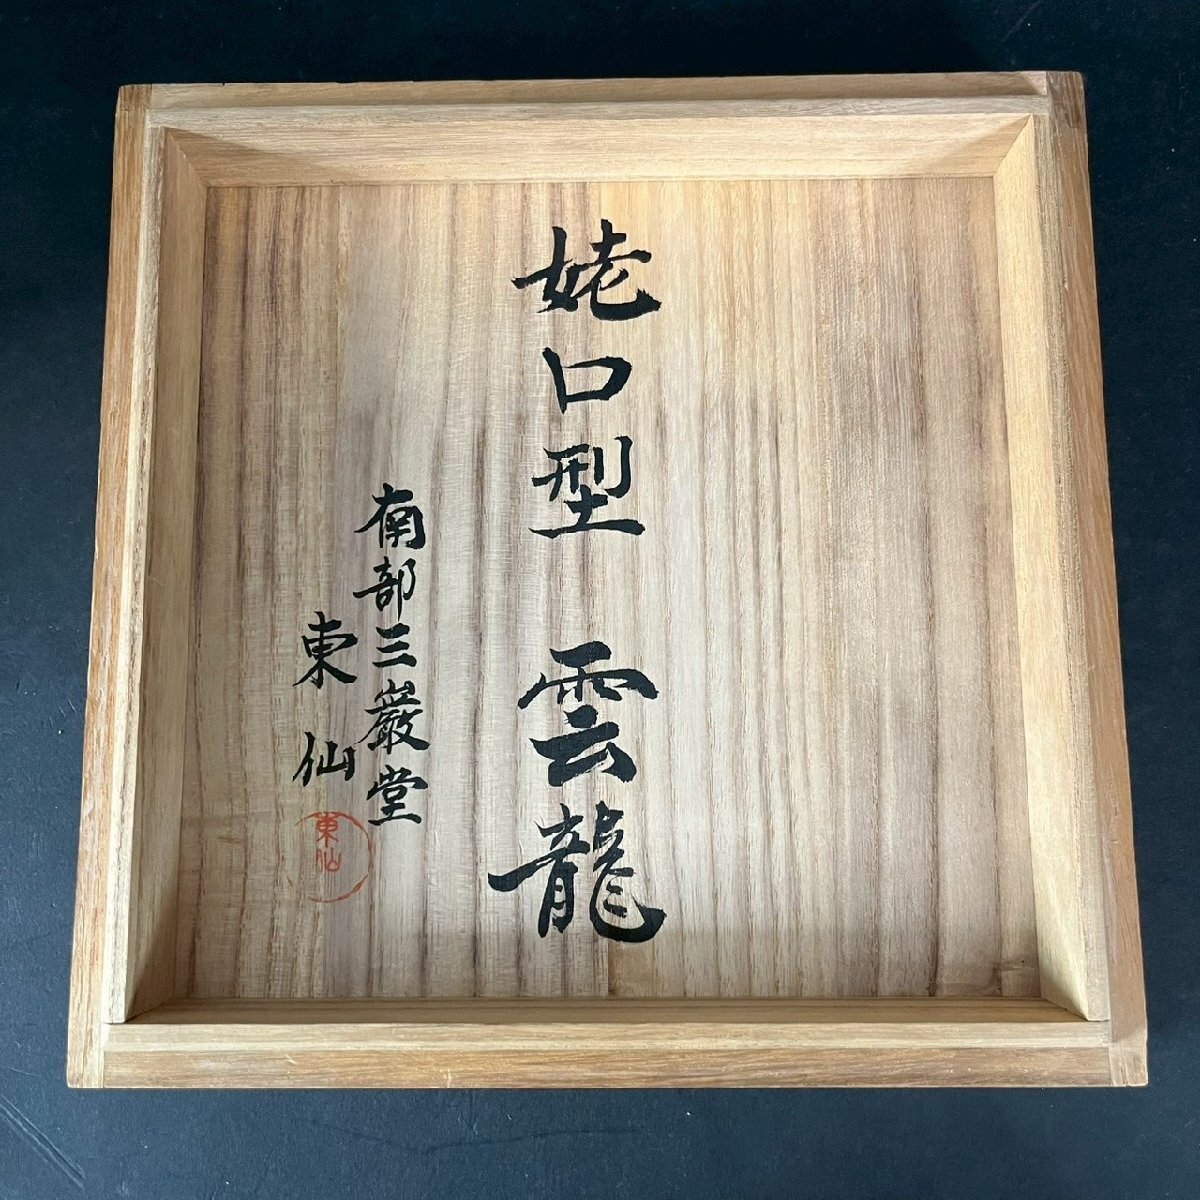 姥口型 雲龍
南部三巖堂
東仙
東仙